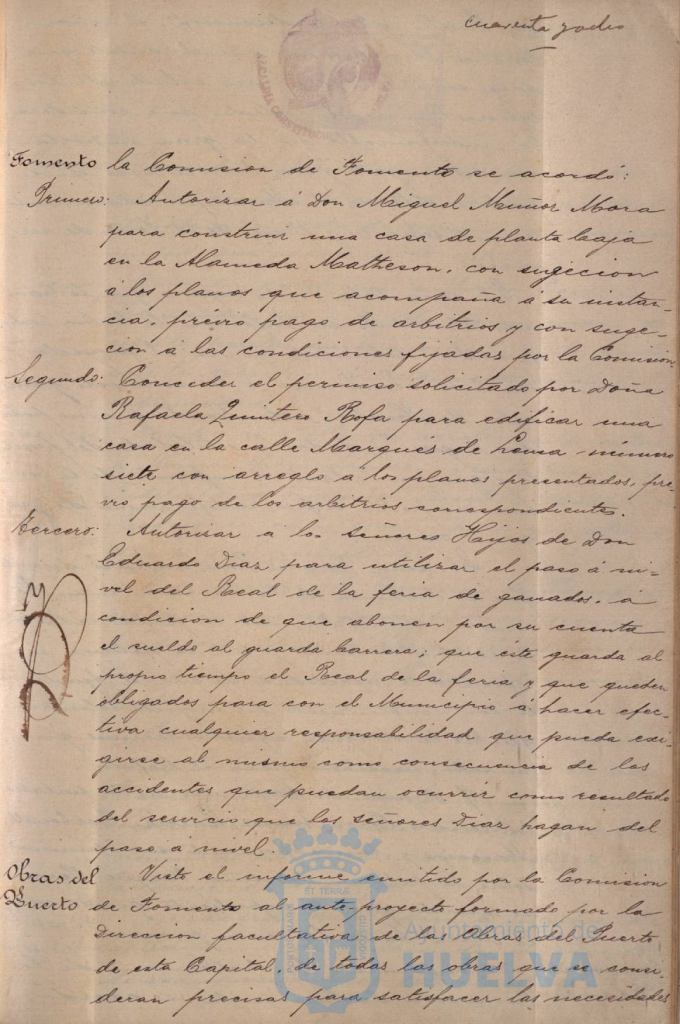 cuarenta y ocho
Fomento la Comision de Fomento se acordó:
Primero: Autorizar á Don Miguel Muñoz Mora
para construir una casa de planta baja
en la Alameda Matheson, con sugecion
á los planos que acompaña á su instan-
cia, prévio pago de arbitrios y con suge-
cion á las condiciones fijadas por la Comision.
Segundo: Conceder el permiso solicitado por Doña
Rafaela Quintero Rofa para edificar una
casa en la calle Marqués de Lema número
siete con arreglo á los planos presentados, pre-
vio pago de los arbitrios correspondientes.
Tercero: Autorizar á los señores Hijos de Don
Eduardo Diaz para utilizar el paso á ni-
vel del Real de la feria de ganados, á
condicion de que abonen por su cuenta
el sueldo al guarda barrera; que éste guarda al
propio tiempo el Real de la feria y que queden
obligados para con el Municipio á hacer efec-
tiva cualquier responsabilidad que pueda exi-
girse al mismo como consecuencia de los
accidentes que puedan ocurrir como resultado
del servicio que los señores Diaz hagan del
paso á nivel.
Obras del Puerto
Visto el informe emitido por la Comision
de Fomento al ante-proyecto formado por la
Direccion facultativa de las Obras del Puerto
de esta Capital, de todas las obras que se consi-
deran precisas para satisfacer las necesidades
Ayuntamiento de
HUELVA